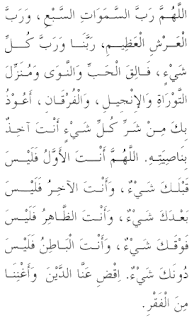 اللَّهُمَّ رَبَّ السَّمَوَاتِ السَّبْعِ، وَرَبَّ
الْعَرْشِ الْعَظِيمِ، رَبَّنَا وَرَبَّ كُلِّ
شَيْءٍ، فَالِقَ الْحَبِّ وَالنَّوَى وَمُنَزِّلَ
التَّوْرَاةِ وَالإِنْجِيلِ، وَالْفُرْقَانِ، أَعُوذُ
بِكَ مِنْ شَرِّ كُلِّ شَيْءٍ أَنْتَ آخِذٌ
بِنَاصِيَتِهِ. اللَّهُمَّ أَنْتَ الأَوَّلُ فَلَيْسَ
قَبْلَكَ شَيْءٌ، وَأَنْتَ الآخِرُ فَلَيْسَ
بَعْدَكَ شَيْءٌ، وَأَنْتَ الظَّاهِرُ فَلَيْسَ
فَوْقَكَ شَيْءٌ، وَأَنْتَ الْبَاطِنُ فَلَيْسَ
دُونَكَ شَيْءٌ. اِقْضِ عَنَّا الدَّيْنَ وَأَغْنِنَا
مِنَ الْفَقْرِ.